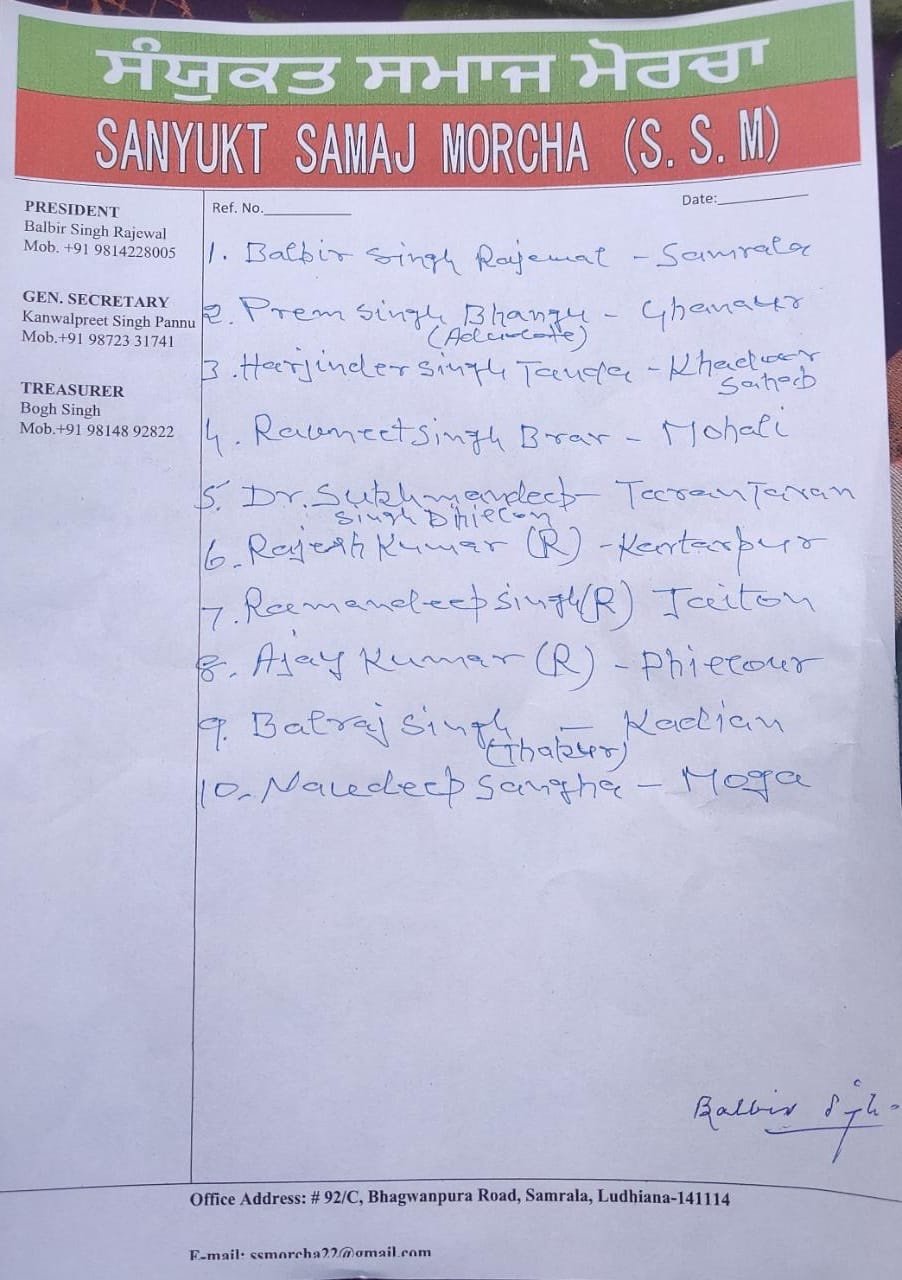 ਸੰਯੁਕਤ ਸਮਾਜ ਮੋਰਚਾ
SANYUKT SAMAJ MORCHA (S. S. M)
PRESIDENT
Balbir Singh Rajewal
Mob. +91 9814228005
GEN. SECRETARY
Kanwalpreet Singh Pannu
Mob.+91 98723 31741
TREASURER
Bogh Singh
Mob.+91 98148 92822
Ref. No.__________ Date:__________
1. Balbir Singh Rajewal - Samrala
2. Prem Singh Bhangu - Ghanaur
(Advocate)
3. Harjinder Singh Tanda - Khadoor
Saheb
4. Ravneet Singh Brar - Mohali
5. Dr. Sukhmandeep - Taran Taran
Singh Dhillon
6. Rajesh Kumar (R) - Kartarpur
7. Ramandeep Singh (R) Jaiton
8. Ajay Kumar (R) - Phillour
9. Balraj Singh - Kadian
(Thakur)
10. Navdeep Sangha - Moga
Balbir Singh
Office Address: # 92/C, Bhagwanpura Road, Samrala, Ludhiana-141114
E-mail: ssmorcha22@gmail.com